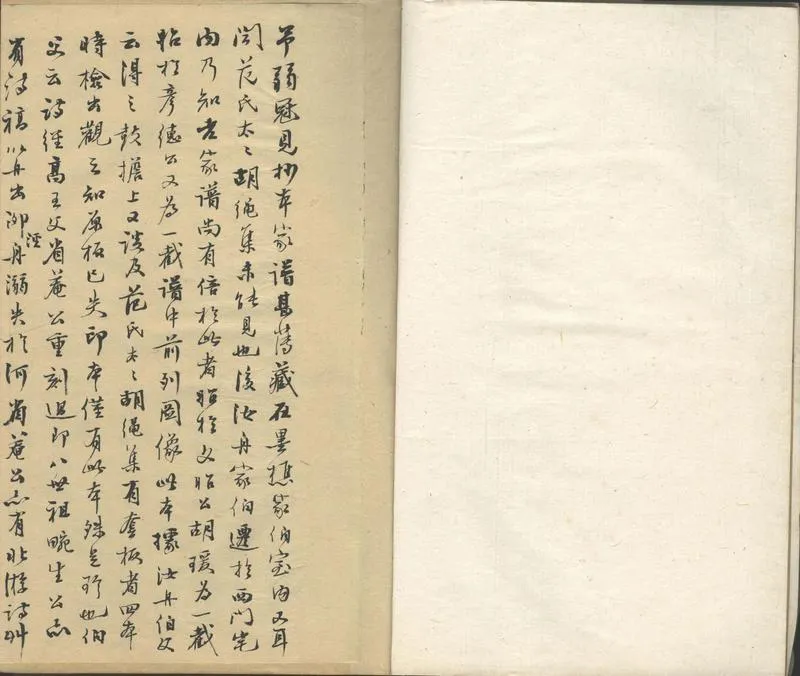 弟弱冠見抄本家譜甚薄藏在墨樵家伯室內又耳
聞范氏太太胡繩集未能見也後汝舟家伯遷於西門宅
內乃知吉家譜尚有倍於此者始於文昭公胡瑗為一截
始於彥德公又為一截譜中前列圖像此本據汝舟伯父
云得之鼓擔上又談及范氏太太胡繩集有套板者四本
時檢出觀之知原板已失印本僅有此本殊足珍也伯
父云詩經高王父省菴公重刻過即八世祖畹生公亦
有詩稿以舟出泖涇舟溺失於河省菴公亦有北游詩艸